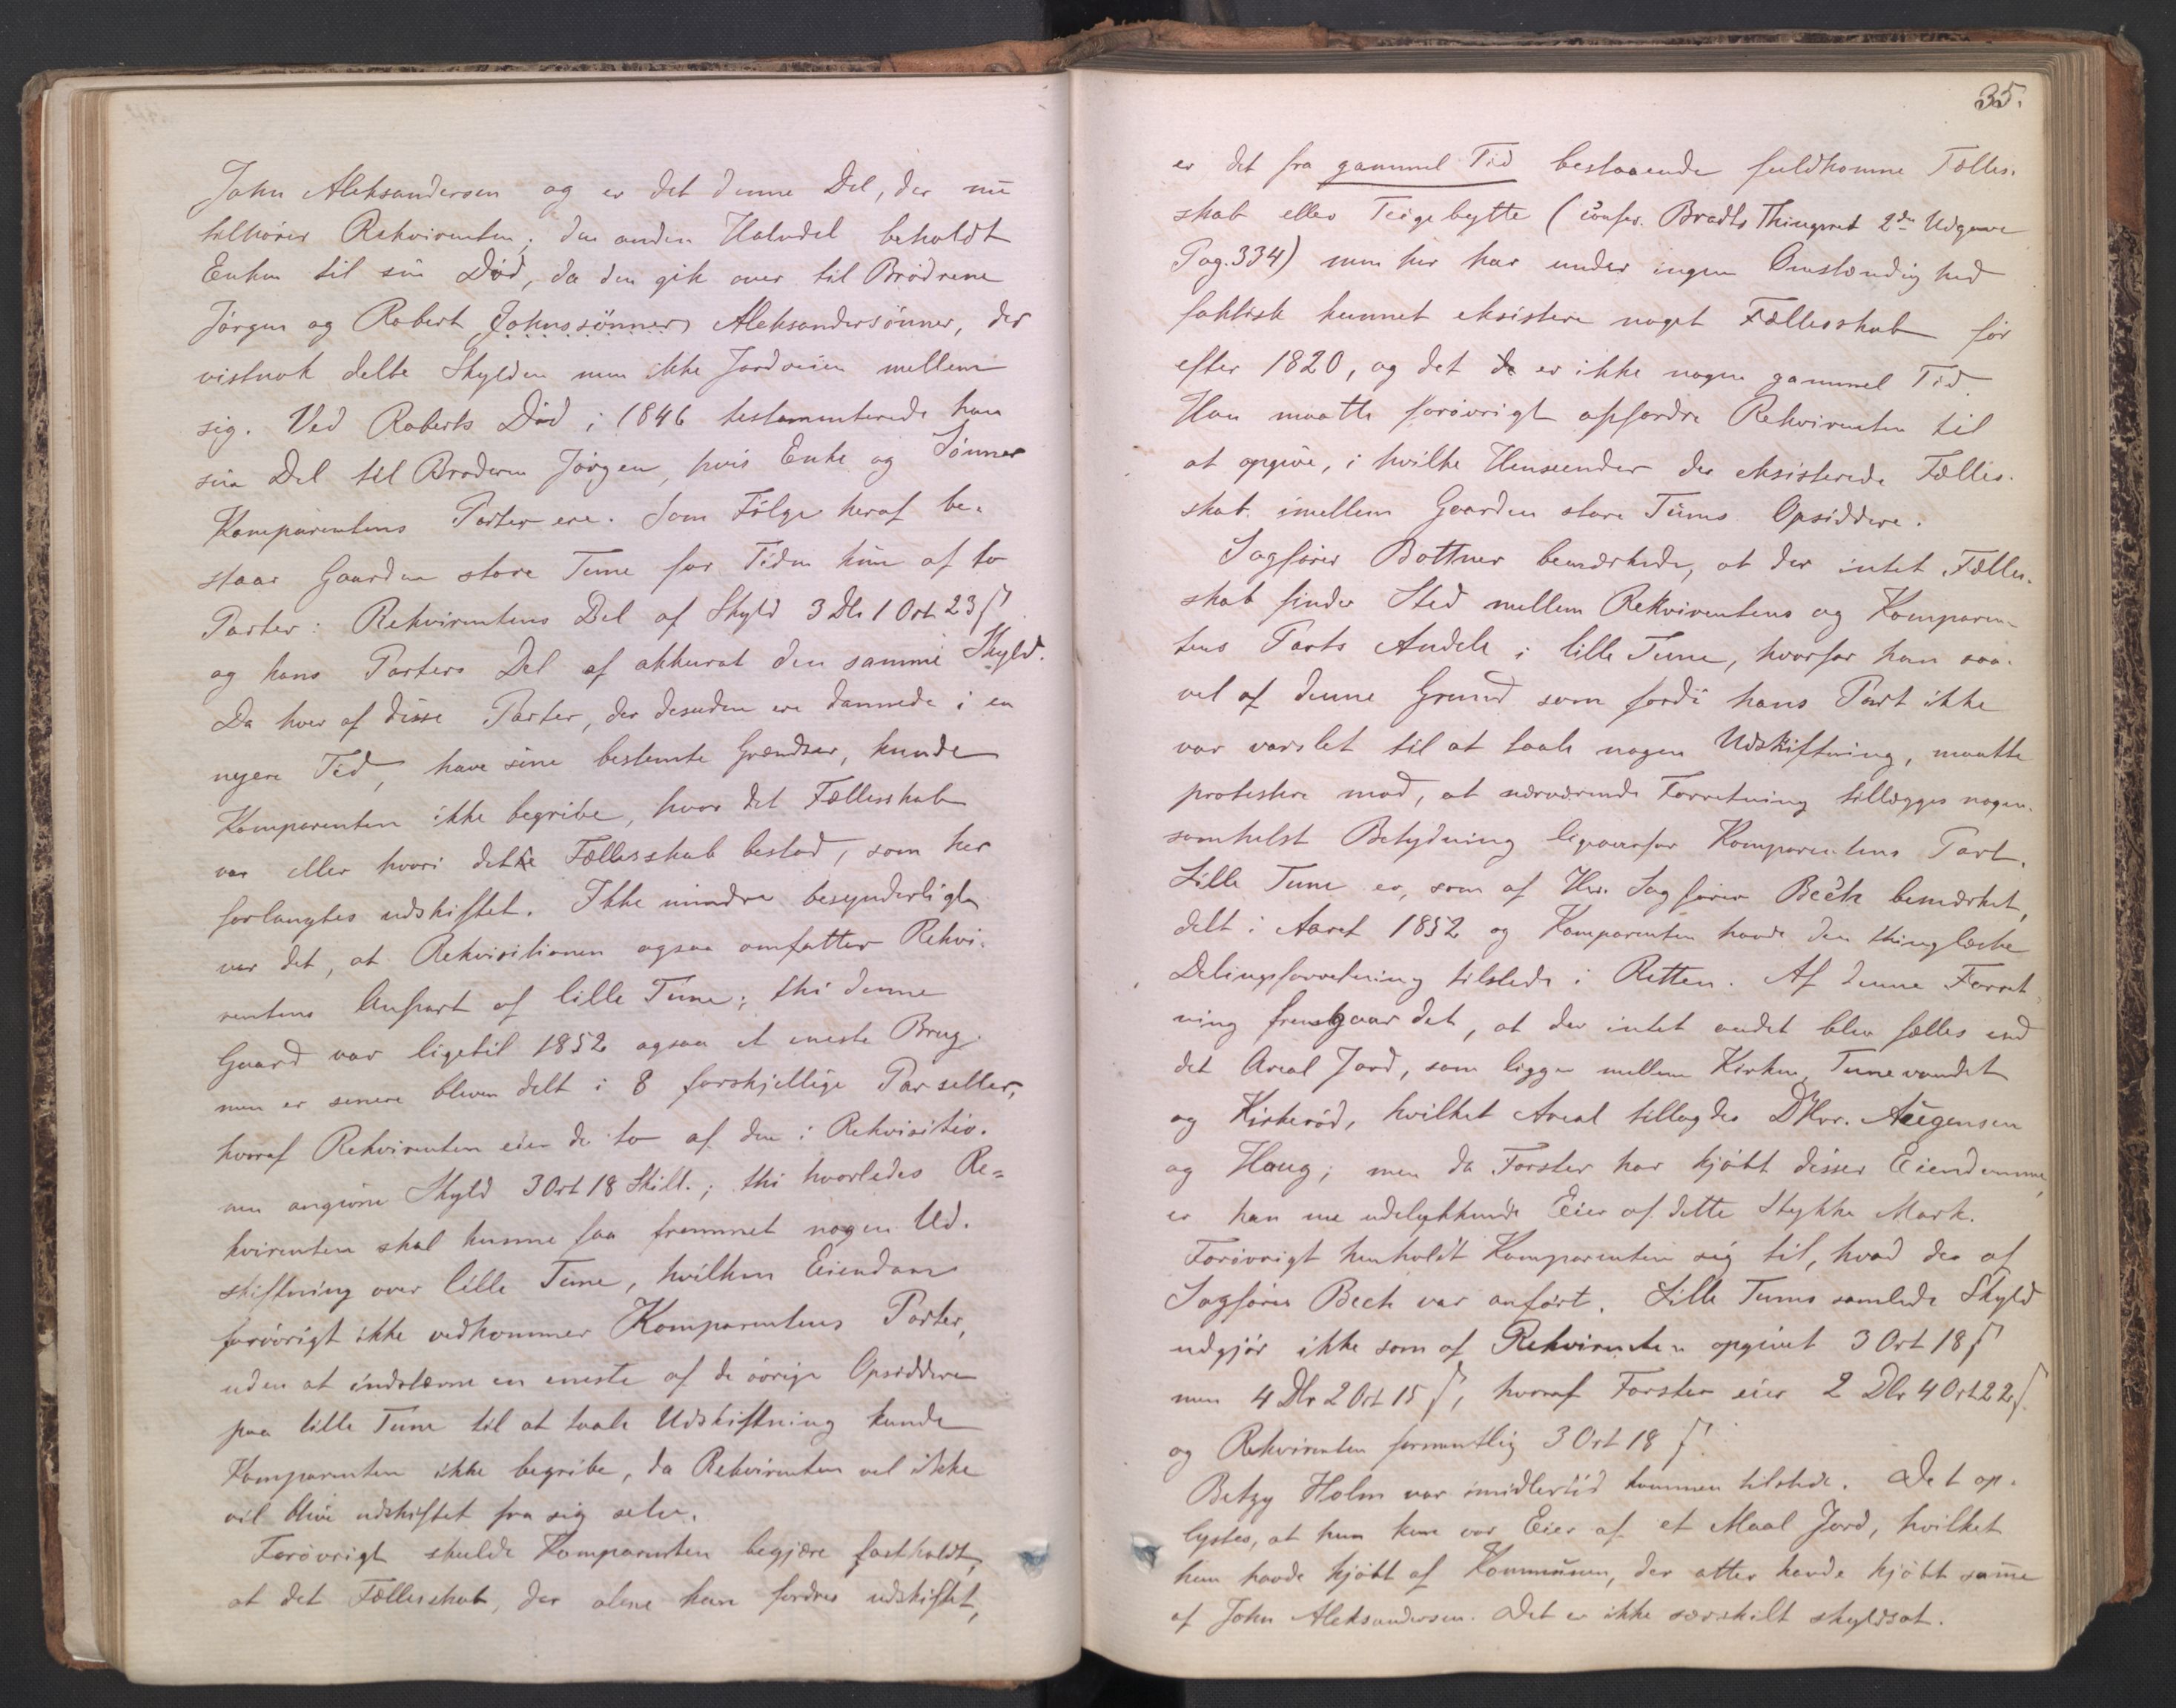 John Aleksandersen og er det denne Del, der nu
tilhører Rekvirenten; den anden Halvdel beholdt
Enken til sin Død, da den gik over til Brødrene
Jørgen og Robert Johnssønner Aleksandersønner, der
vistnok delte Skylden men ikke Jordveien mellem
sig. Ved Roberts Død i 1846 testamenterede han
sin Del til Broderen Jørgen, hvis Enke og Sønner
Komparentens Parter ere. Som Følge heraf be-
staar Gaarden store Tune for Tiden kun af to
Parter: Rekvirentens Del af Skyld 3 Dlr 1 Ort 23 ß
og hans Parters Del af akkurat den samme Skyld.
Da hver af disse Parter, der desuden ere dannede i en
nyere Tid, have sine bestemte Grændser, kunde
Komparenten ikke begribe, hvor det Fællesskab
var eller hvori dette Fællesskab bestod, som her
forlangtes udskiftet. Ikke mindre besynderligt
var det, at Rekvisitionen ogsaa omfatter Rekvi-
rentens Anpart af lille Tune; thi denne
Gaard var ligetil 1852 ogsaa et eneste Brug
men er senere bleven delt i 8 forskjellige Parseller,
hvoraf Rekvirenten eier de to af den i Rekvisitio-
nen angivne Skyld 3 Ort 18 Skill.; thi hvorledes Re-
kvirenten skal kunne faa fremmet nogen Ud-
skiftning over lille Tune, hvilken Eiendom
forøvrigt ikke vedkommer Komparentens Parter,
uden at indstævne en eneste af de øvrige Opsiddere
paa lille Tune til at taale Udskiftning kunde
Komparenten ikke begribe, da Rekvirenten vel ikke
vil blive udskiftet fra sig selv.
Forøvrigt skulde Komparenten begjære fastholdt,
at det Fællesskab, der alene kan fordres udskiftet,
35.
er det fra gammel Tid bestaaende fuldkomne Fælles-
skab eller Teigebytte (confer. Brodts Thingsret 2den Udgave
Pag. 334) men her har under ingen Omstændighed
faktisk kunnet eksistere noget Fællesskab før
efter 1820, og det de er ikke nogen gammel Tid.
Han maatte forøvrigt opfordre Rekvirenten til
at opgive, i hvilke Henseender der eksisterede Fælles-
skab imellem Gaarden store Tunes Opsiddere.
Sagfører Bottner bemærkede, at der intet Fælles-
skab finder Sted mellem Rekvirentens og Komparen-
tens Parts Andele i lille Tune, hvorfor han saa-
vel af denne Grund som fordi hans Part ikke
var varslet til at taale nogen Udskiftning, maatte
protestere mod, at nærværende Forretning tillægges nogen-
somhelst Betydning ligeoverfor Komparentens Part.
Lille Tune er, som af Hr. Sagfører Beck bemærket,
delt i Aaret 1852 og Komparenten havde den thinglæste
Delingsforretning tilstede i Retten. Af denne Forret-
ning fremgaar det, at der intet andet blev fælles end
det Areal Jord, som ligger mellem Kirken, Tunevandet
og Kirkerød, hvilket Areal tillagdes DHrr. Augensen
og Haug; men da Forster har kjøbt disses Eiendomme,
er han nu udelukkende Eier af dette Stykke Mark.
Forøvrigt henholdt Komparenten sig til, hvad der af
Sagfører Beck var anført. Lille Tunes samlede Skyld
udgjør ikke som af Rekvirenten opgivet 3 Ort 18 ß
men 4 Dlr 2 Ort 15 ß, hvoraf Forster eier 2 Dlr 4 Ort 22 ß
og Rekvirenten formentlig 3 Ort 18 ß.
Betzy Holm var imidlertid kommen tilstede. Det op-
lystes, at hun kun var Eier af et Maal Jord, hvilket
hun havde kjøbt af Kommunen, der atter havde kjøbt samme
af John Aleksandersen. Det er ikke særskilt skyldsat.